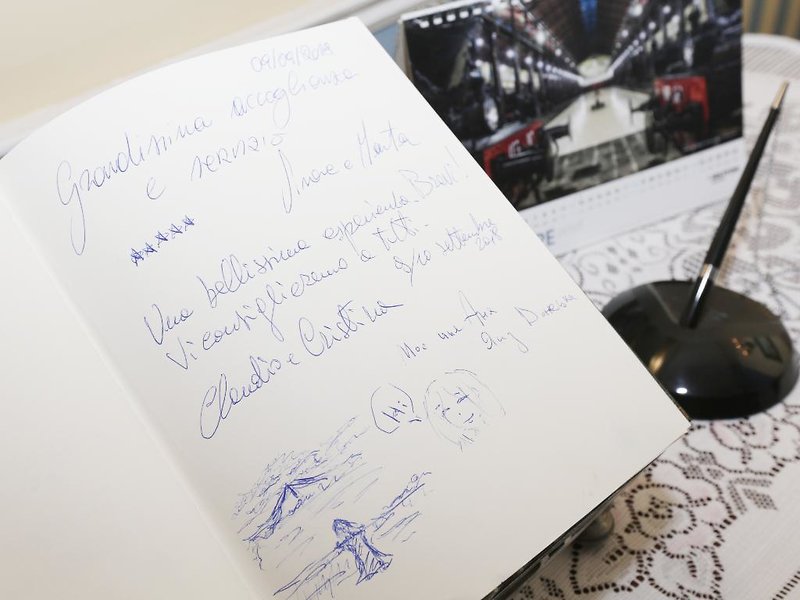 09/09/2019
Grandissima accoglienza
e servizio
e Marta
Una bellissima esperienza. Bravi!
Vi consiglieremo a tutti.
9/10 settembre
2018
Claudio e Cristina
Hi